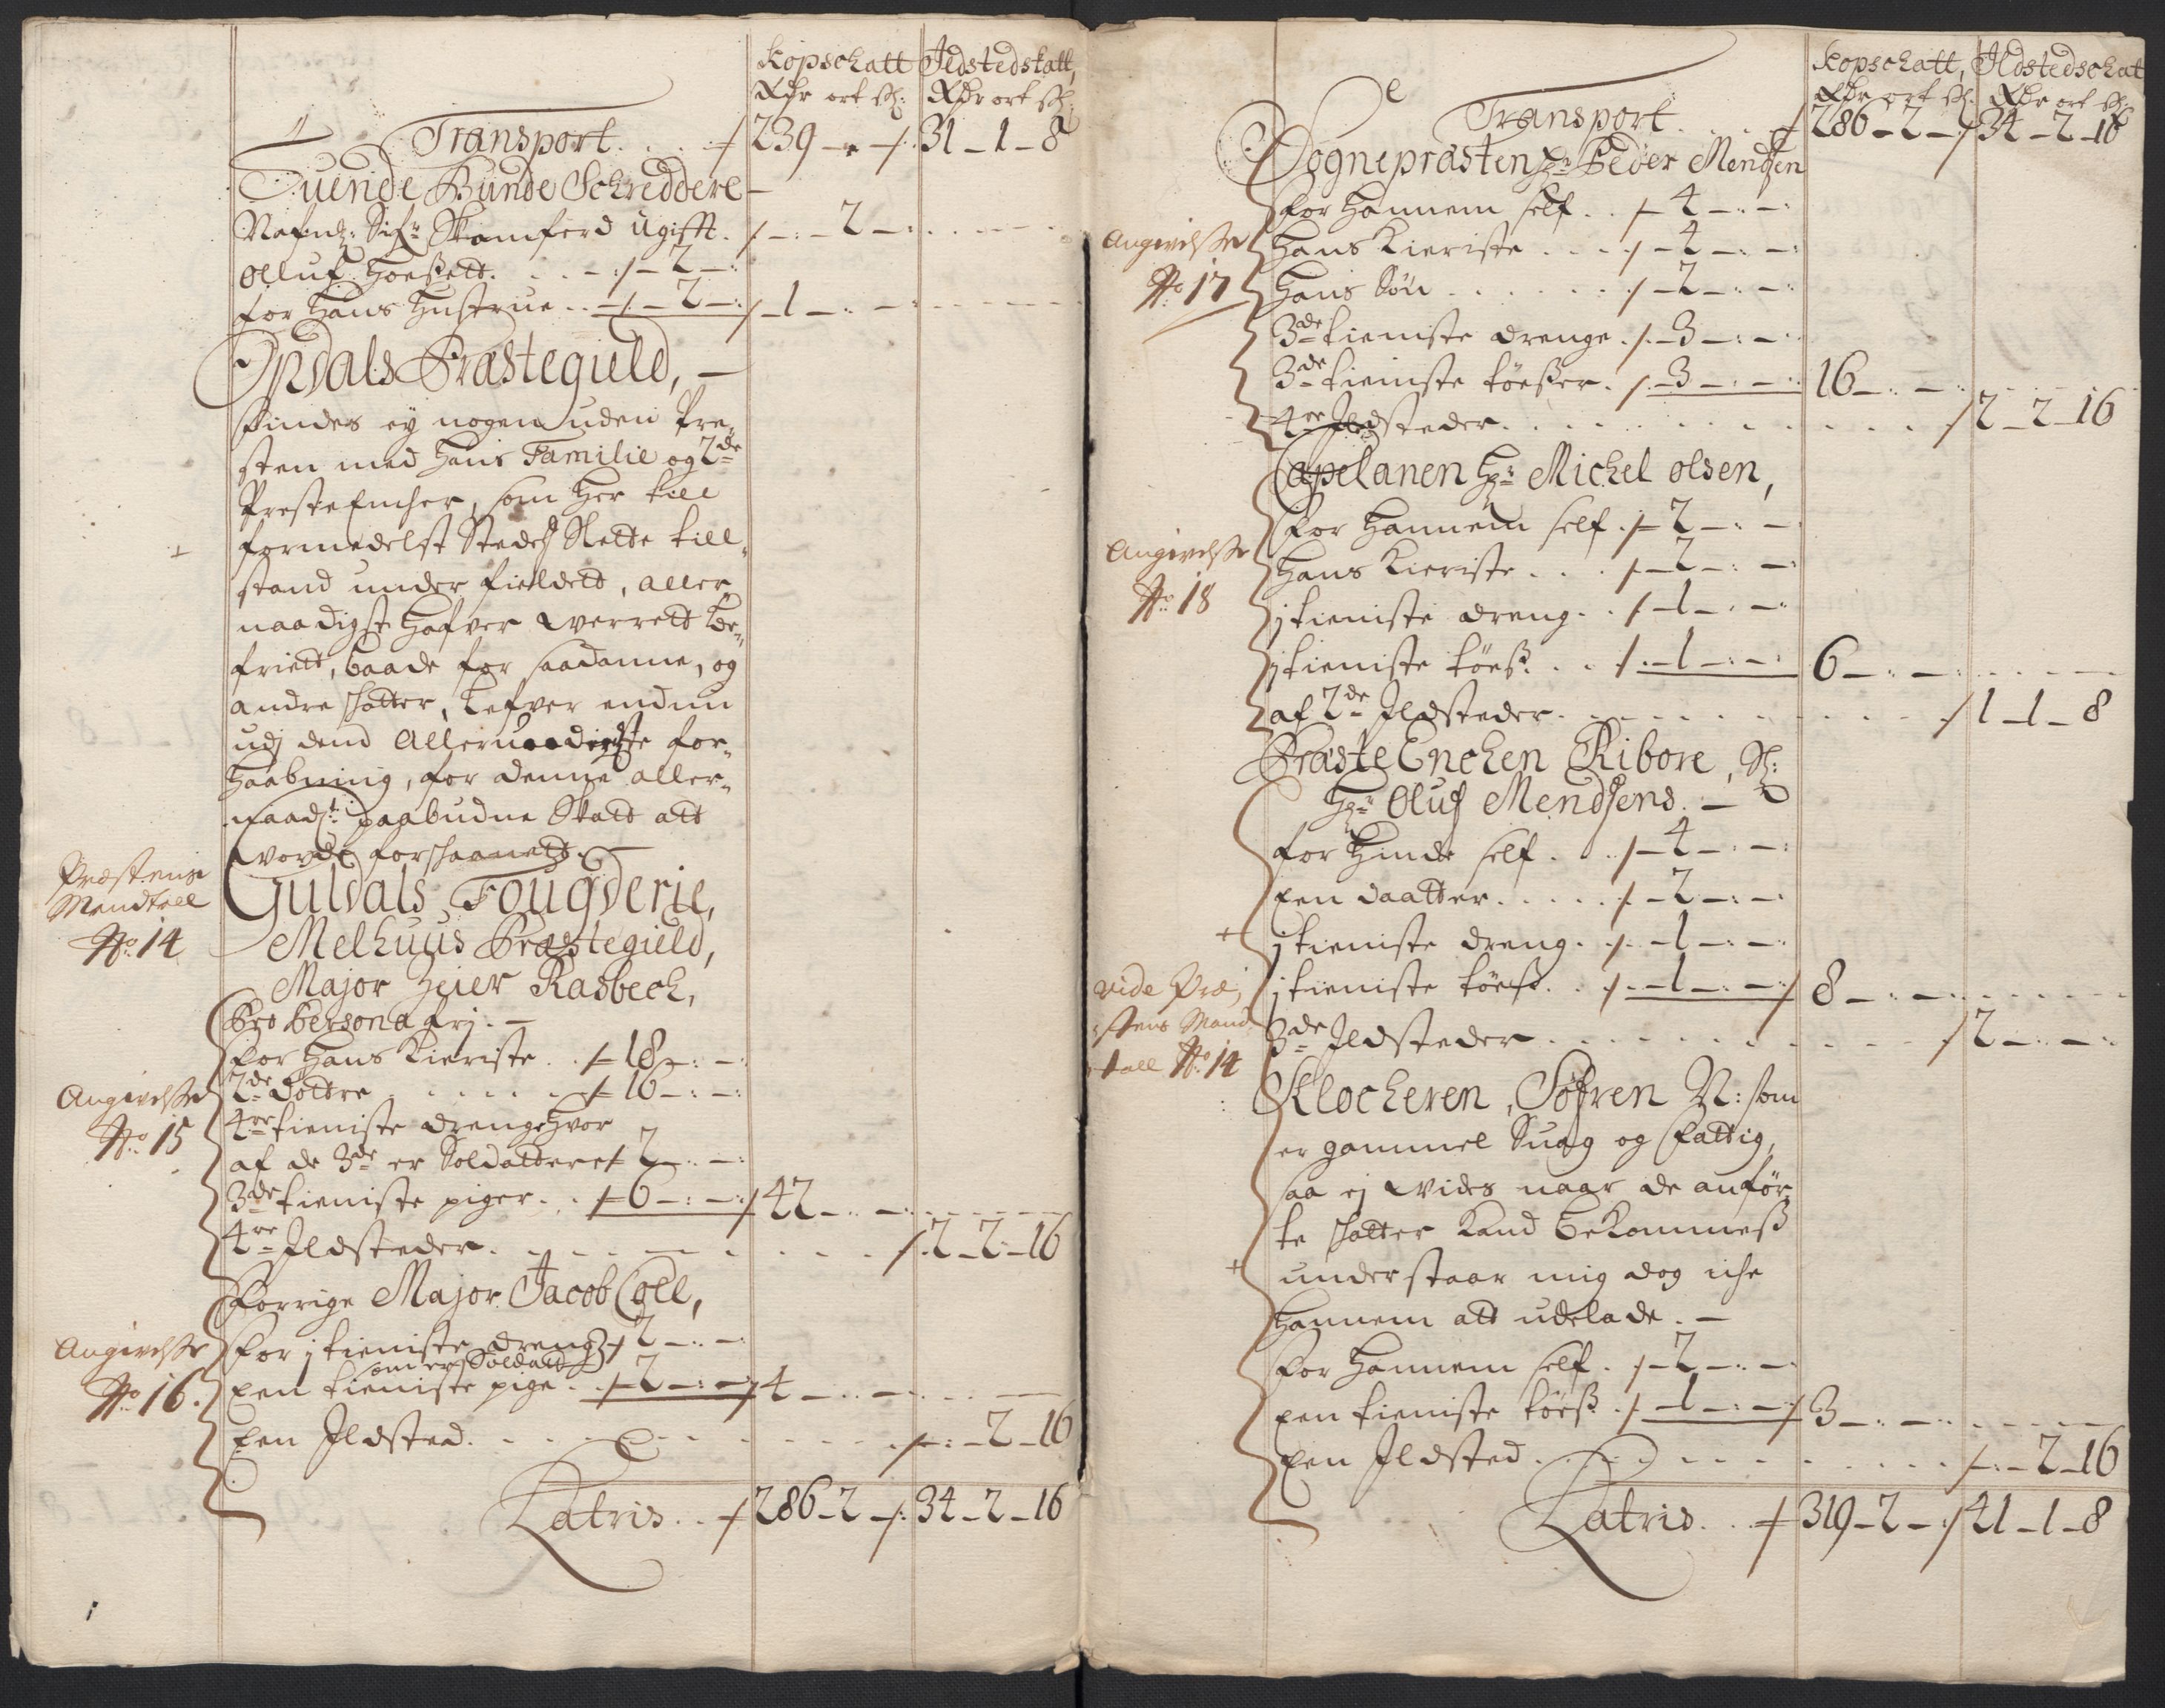 Kopschatt Ildstedskatt,
Rdr ort sk: Rdr ort sk:
Transport . . . . 239 - " - 31 - 1 - 8
Tuende Bunde Schreddere
Nafnl: Sifr Skamferd Ugifft . - : - 2 - :
Olluf Hoeßett . . . . - 2 - :
for Hans Hustrue . . - 2 - : 1 - : - :
Opdals Præstegield,
Findes ej nogen uden Pre-
sten med hans Familie og 2de
Preste Encher, som her till
formedelst Stedes Slette till-
stand under fieldett, aller-
naadigst hafver verrett be-
friett, baade for saadanne, og
andre skatter, lefver endnu
udj dend Allernaadigste for-
haabning, for denne aller-
naadt: paabudne Skatt att
vorde forschaanett.
Præstens
Mandtall
No 14
Guldals Fougderie,
Melhuus Præstegield,
Major Heier Rasbech,
Pro Persona frj . -
for Hans Kieriste . . 18 - : - :
2de Dottre . . . . . 16 - : - :
Angivelsse
No 15
4re tieniste drenge hvor
af de 3de er Soldatter 2 - : - :
3de tieniste piger . . 6 - : - : 42 - : - :
4re Ildsteder . . . . . . . . 2 - 2 - 16
Forrige Major Jacob Coll,
Angivelsse
No 16.
for j tieniste dreng 2 - : - :
som er Soldatt
Een tieniste pige . 2 - : - : 4 - : - :
Een Ildsted . . . . . . . . - : - 2 - 16
Latris . . 286 - 2 - : 34 - 2 - 16
Kopschatt, Ildstedschat
Rdr ort sk: Rdr ort sk:
Transport . . . . 286 - 2 - 34 - 2 - 16
Sognepræsten Hr: Peder Mendsen
for Hannem self . . 4 - : - :
Angivelsse
No 17
Hans Kieriste . . . 4 - : - :
Hans Søn . . . . . . 2 - : - :
3de tieniste drenge . 3 - : - :
3de tieniste tøeßer . 3 - : - : 16 - : - :
4re Ildsteder . . . . . . . . 2 - 2 - 16
Capelanen Hr: Michel Olsen,
for Hannem self . 2 - : - :
Angivelsse
No 18
Hans Kieriste . . . 2 - : - :
j tieniste dreng . . 1 - : - :
j tieniste tøeß . . . 1 - : - : 6 - : - :
af 2de Ildsteder . . . . . . . . 1 - 1 - 8
Præste Enchen Ribore, Sl:
Hr: Oluf Mendsens . -
for Hinde self . . . 4 - : - :
Een Daatter . . . . . 2 - : - :
j tieniste dreng . . 1 - : - :
j tieniste tøeß . . 1 - : - : 8 - : - :
vide Præ-
stens Mand-
tall No 14
3de Ildsteder . . . . . . . . 2 - : - :
Klocheren, Søfren N: som
er gammel Suag og fattig,
saa ej vides naar de anfør-
te skatter kand bekommeß
understaar mig dog iche
Hannem att udelade . -
for Hannem self . . 2 - : - :
Een tieniste tøeß . 1 - : - : 3 - : - :
Een Ildsted . . . . . . . . - : - 2 - 16
Latris . . . 319 - 2 - : 41 - 1 - 8